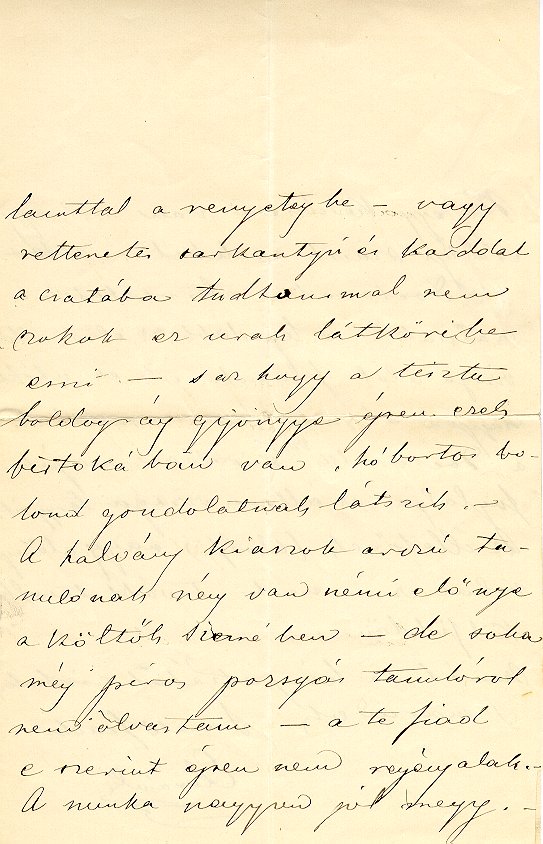 lanttal a rengetegbe – vagy
rettenetes sarkantyú és karddal
a csatába tudtommal nem
szokok ez urak látköribe
esni – s az hogy a tiszta
boldogság gyönyge épen ezek
birtokában van, hóbortos bo-
lond gondolatnak látszik. –
A halvány kiaszok arczú ta-
nulónak még van némi előnye
a költők szemében – de soha
még piros pozsgás tanulóról
nem olvastam – a te fiad
e szerint épen nem regényalak. –
A munka nagyon jól megy. –